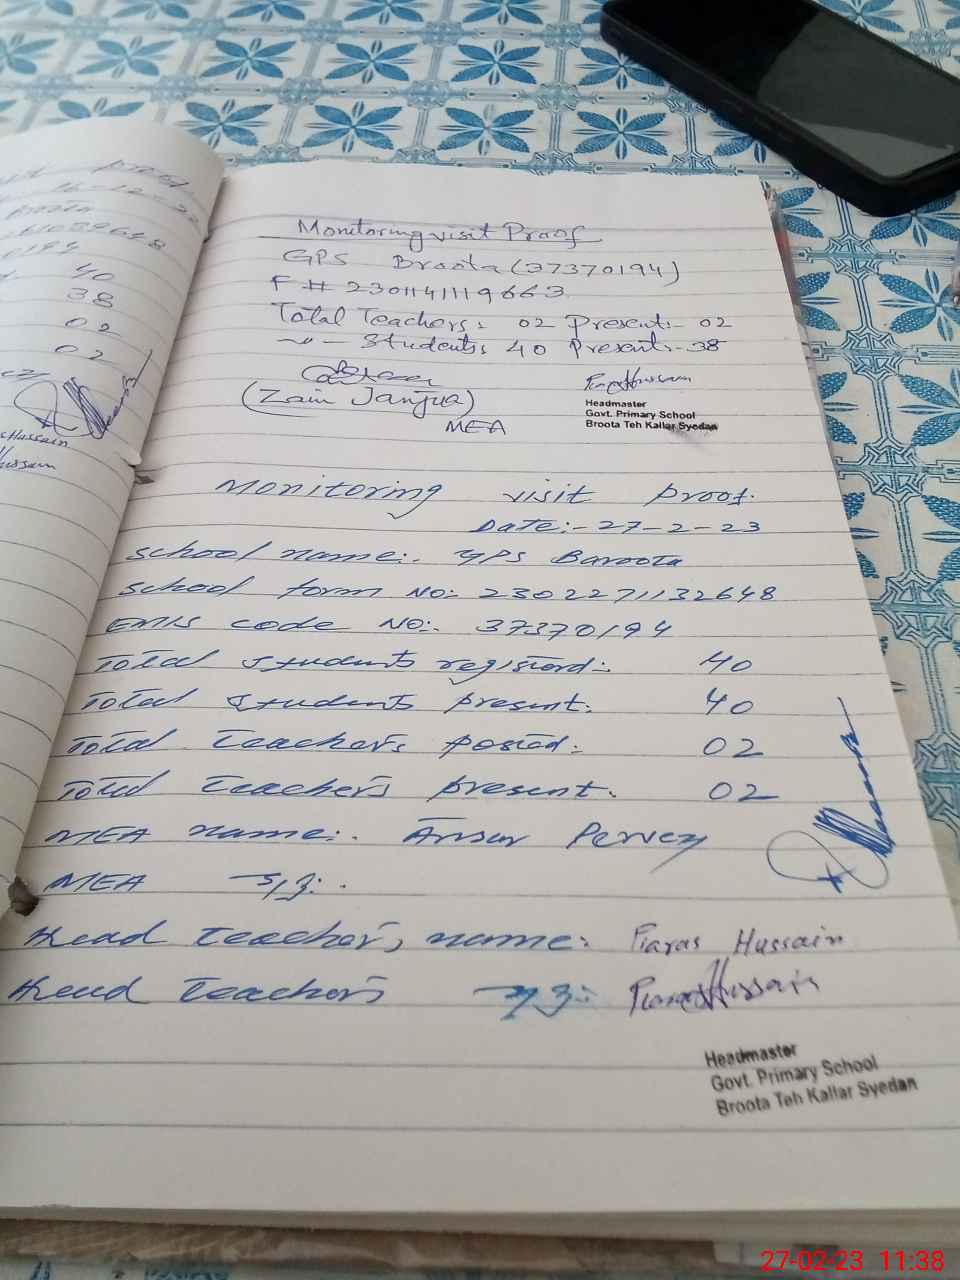 16-12-22
40
38
02
02
Hussain
Monitoring visit Proof
GPS Broota (37370194)
F # 2301141119663
Total Teachers: 02 Present:- 02
Students: 40 Present:- 38
(Zain Janjua)
MEA
Headmaster
Govt. Primary School
Broota Teh Kallar Syedan
Monitoring visit proof.
Date:- 27-2-23
school name:. GPS Baroota
school form No: 2302271132648
EMIS code No:. 37370194
Total students registord:. 40
Total students present: 40
Total teachers posted: 02
Total teachers present. 02
MEA name:. Ansar Pervez
MEA
Head teacher, name: Piaras Hussain
Head teachers Piaras Hussain
Headmaster
Govt. Primary School
Broota Teh Kallar Syedan
27-02-23 11:38